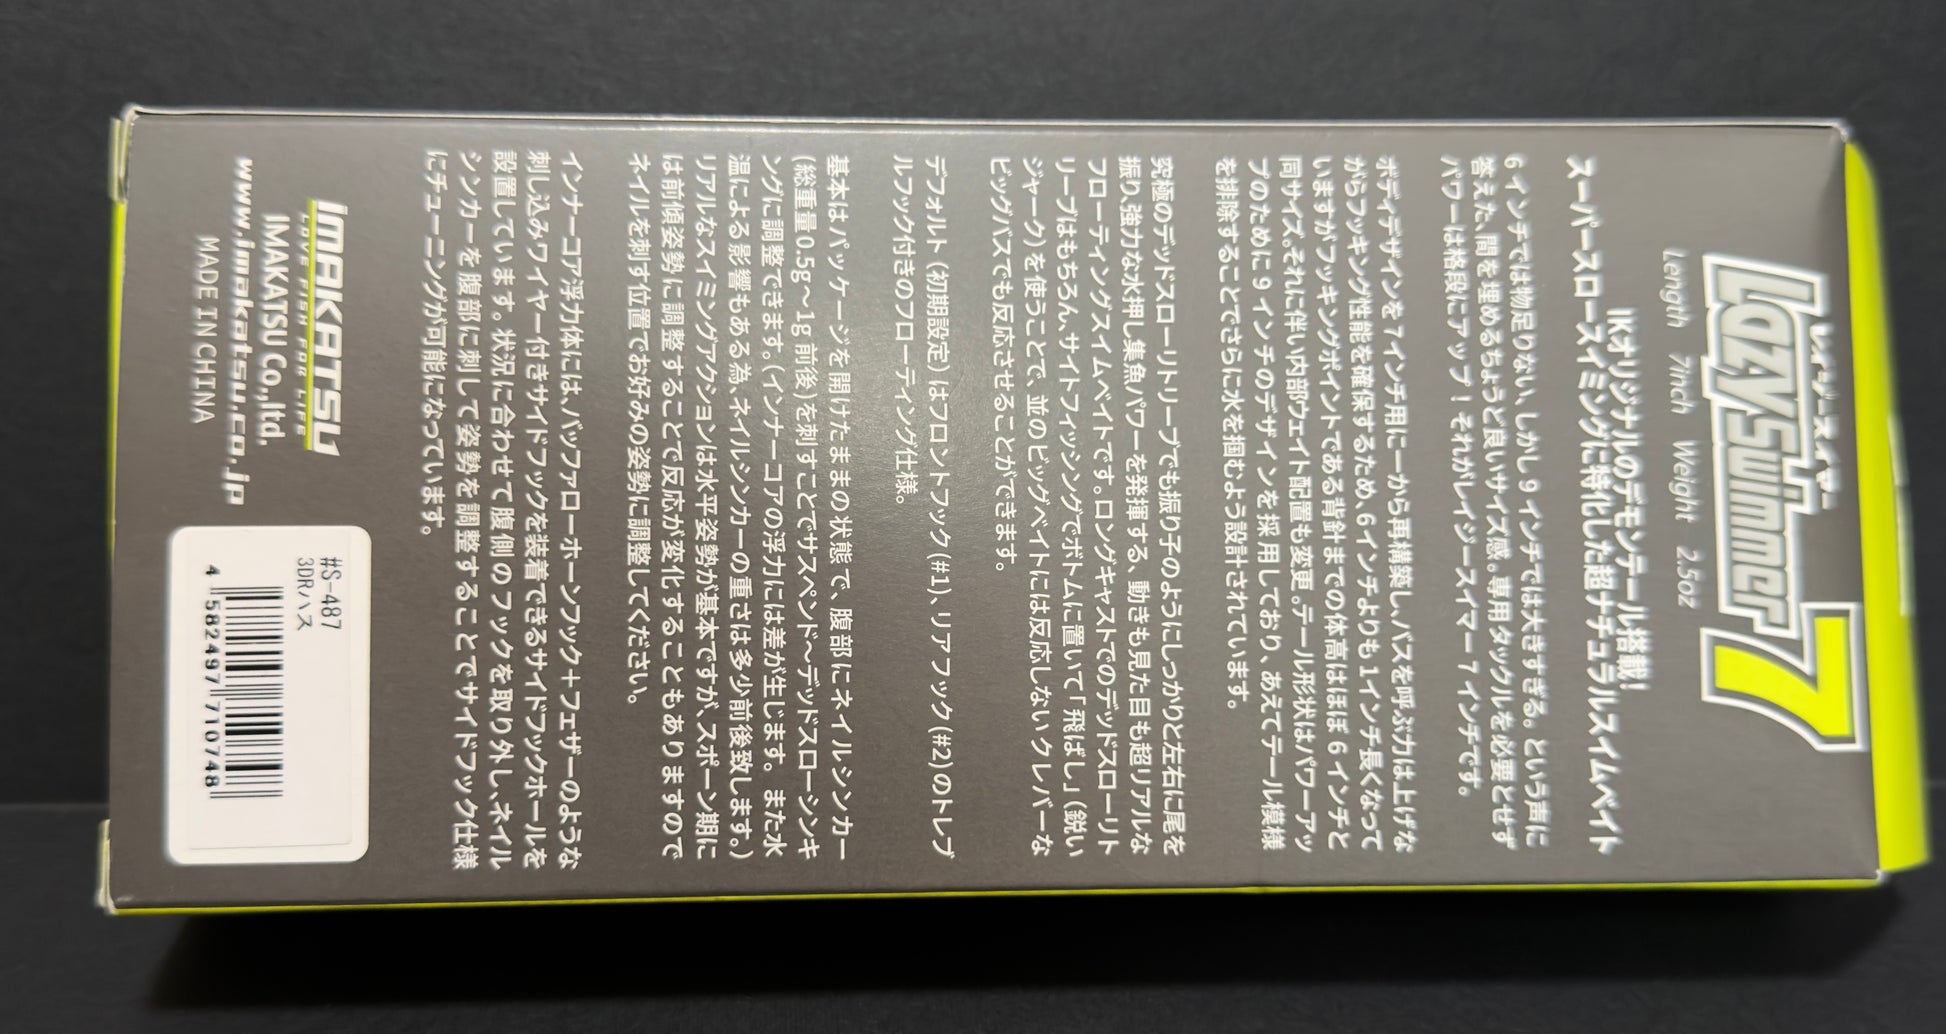 レイジースイマー
Lazy Swimmer 7
Length 7inch Weight 2.5oz
IKオリジナルのデモンテール搭載!
スーパースロースイミングに特化した超ナチュラルスイムベイト
6インチでは物足りない、しかし9インチでは大きすぎる。という声に
答えた、間を埋めるちょうど良いサイズ感。専用タックルを必要とせず
パワーは格段にアップ!それがレイジースイマー7インチです。
ボディデザインを7インチ用に一から再構築し、バスを呼ぶ力は上げな
がらフッキング性能を確保するため、6インチよりも1インチ長くなって
いますがフッキングポイントである背針までの体高はほぼ6インチと
同サイズ。それに伴い内部ウェイト配置も変更。テール形状はパワーアッ
プのために9インチのデザインを採用しており、あえてテール模様
を排除することでさらに水を掴むよう設計されています。
究極のデッドスローリトリーブでも振り子のようにしっかりと左右に尾を
振り、強力な水押し集魚パワーを発揮する、動きも見た目も超リアルな
フローティングスイムベイトです。ロングキャストでのデッドスローリト
リーブはもちろん、サイトフィッシングでボトムに置いて「飛ばし」(鋭い
ジャーク)を使うことで、並のビッグベイトには反応しないクレバーな
ビッグバスでも反応させることができます。
デフォルト(初期設定)はフロントフック(#1)、リアフック(#2)のトレブ
ルフック付きのフローティング仕様。
基本はパッケージを開けたままの状態で、腹部にネイルシンカー
(総重量0.5g〜1g前後)を刺すことでサスペンド〜デッドスローシンキ
ングに調整できます。(インナーコアの浮力には差が生じます。また水
温による影響もある為、ネイルシンカーの重さは多少前後致します。)
リアルなスイミングアクションは水平姿勢が基本ですが、スポーン期に
は前傾姿勢に調整することで反応が変化することもありますので
ネイルを刺す位置でお好みの姿勢に調整してください。
インナーコア浮力体には、バッファローホーンフック+フェザーのような
刺し込みワイヤー付きサイドフックを装着できるサイドフックホールを
設置しています。状況に合わせて腹側のフックを取り外し、ネイル
シンカーを腹部に刺して姿勢を調整することでサイドフック仕様
にチューニングが可能になっています。
IMAKATSU
LOVE FISH FOR LIFE
IMAKATSU Co.,ltd.
MADE IN CHINA
www.imakatsu.co.jp
#S-487
3DRハス
4 582497 710748